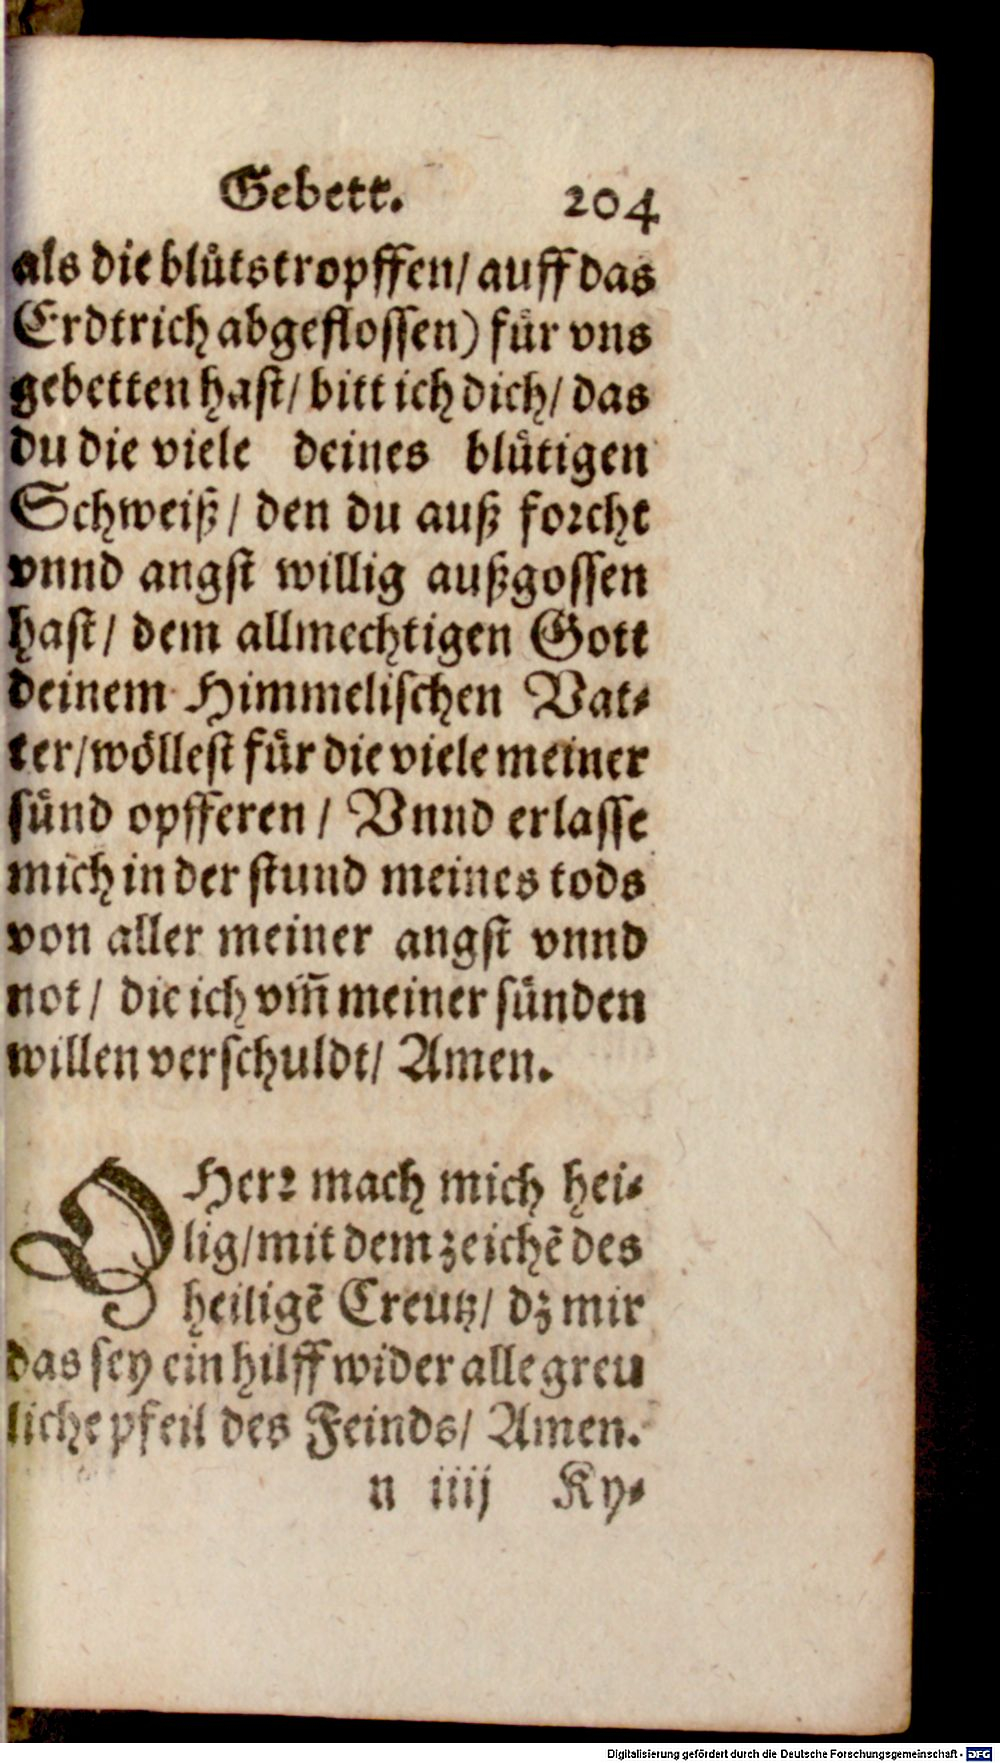 Gebett. 204
als die blůtstropffen/ auff das
Erdtrich abgeflossen) für vns
gebetten hast/ bitt ich dich/ das
du die viele deines blůtigen
Schweiß/ den du auß forcht
vnnd angst willig außgossen
hast/ dem allmechtigen Gott
deinem Himmelischen Vat-
ter/wöllest für die viele meiner
sünd opfferen/ Vnnd erlasse
mich in der stund meines tods
von aller meiner angst vnnd
not/ die ich vm̃ meiner sünden
willen verschuldt/ Amen.
O Herr mach mich hei-
lig/mit dem zeichẽ des
heiligẽ Creutz/ dz mir
das sey ein hilff wider alle greu
liche pfeil des Feinds/ Amen.
n iiij Ky-
Digitalisierung gefördert durch die Deutsche Forschungsgemeinschaft - DFG